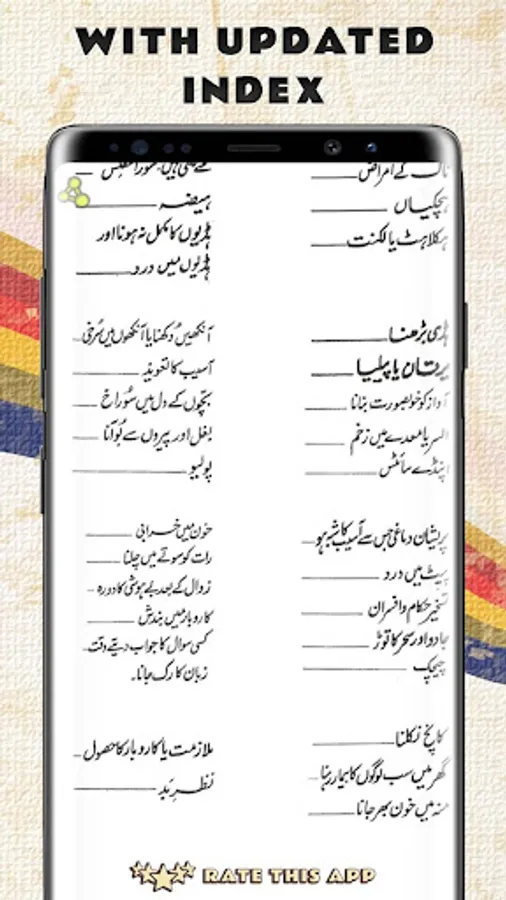 WITH UPDATED
INDEX
ناک کے امراض
ہچکیاں
ہکلاہٹ یا لکنت
ہڈی بڑھنا
یرقان یا پیلیا
آواز کو خوبصورت بنانا
السر یا معدے میں زخم
اپنڈے سائٹس
پریشان دماغی جس سے آسیب کا شبہ ہو
پیٹ میں درد
تسخیر حکام و افسران
جادو اور سحر کا توڑ
چیچک
کانچ نکلنا
گھر میں سب لوگوں کا بیمار رہنا
منہ میں خون بھر جانا
ہیضہ
ہڈیوں کا مکمل نہ ہونا اور
ہڈیوں میں درد
آنکھیں دکھنا یا آنکھوں میں سُرخی
آسیب کا تعویذ
بچوں کے دل میں سُوراخ
بغل اور پیروں سے بُو آنا
پولیو
خون میں خرابی
رات کو سوتے میں چلنا
زوال کے بعد بے ہوشی کا دورہ
کاروبار میں بندش
کسی سوال کا جواب دیتے وقت
زبان کا رک جانا۔
ملازمت یا کاروبار کا حصول
نظرِ بَد
RATE THIS APP